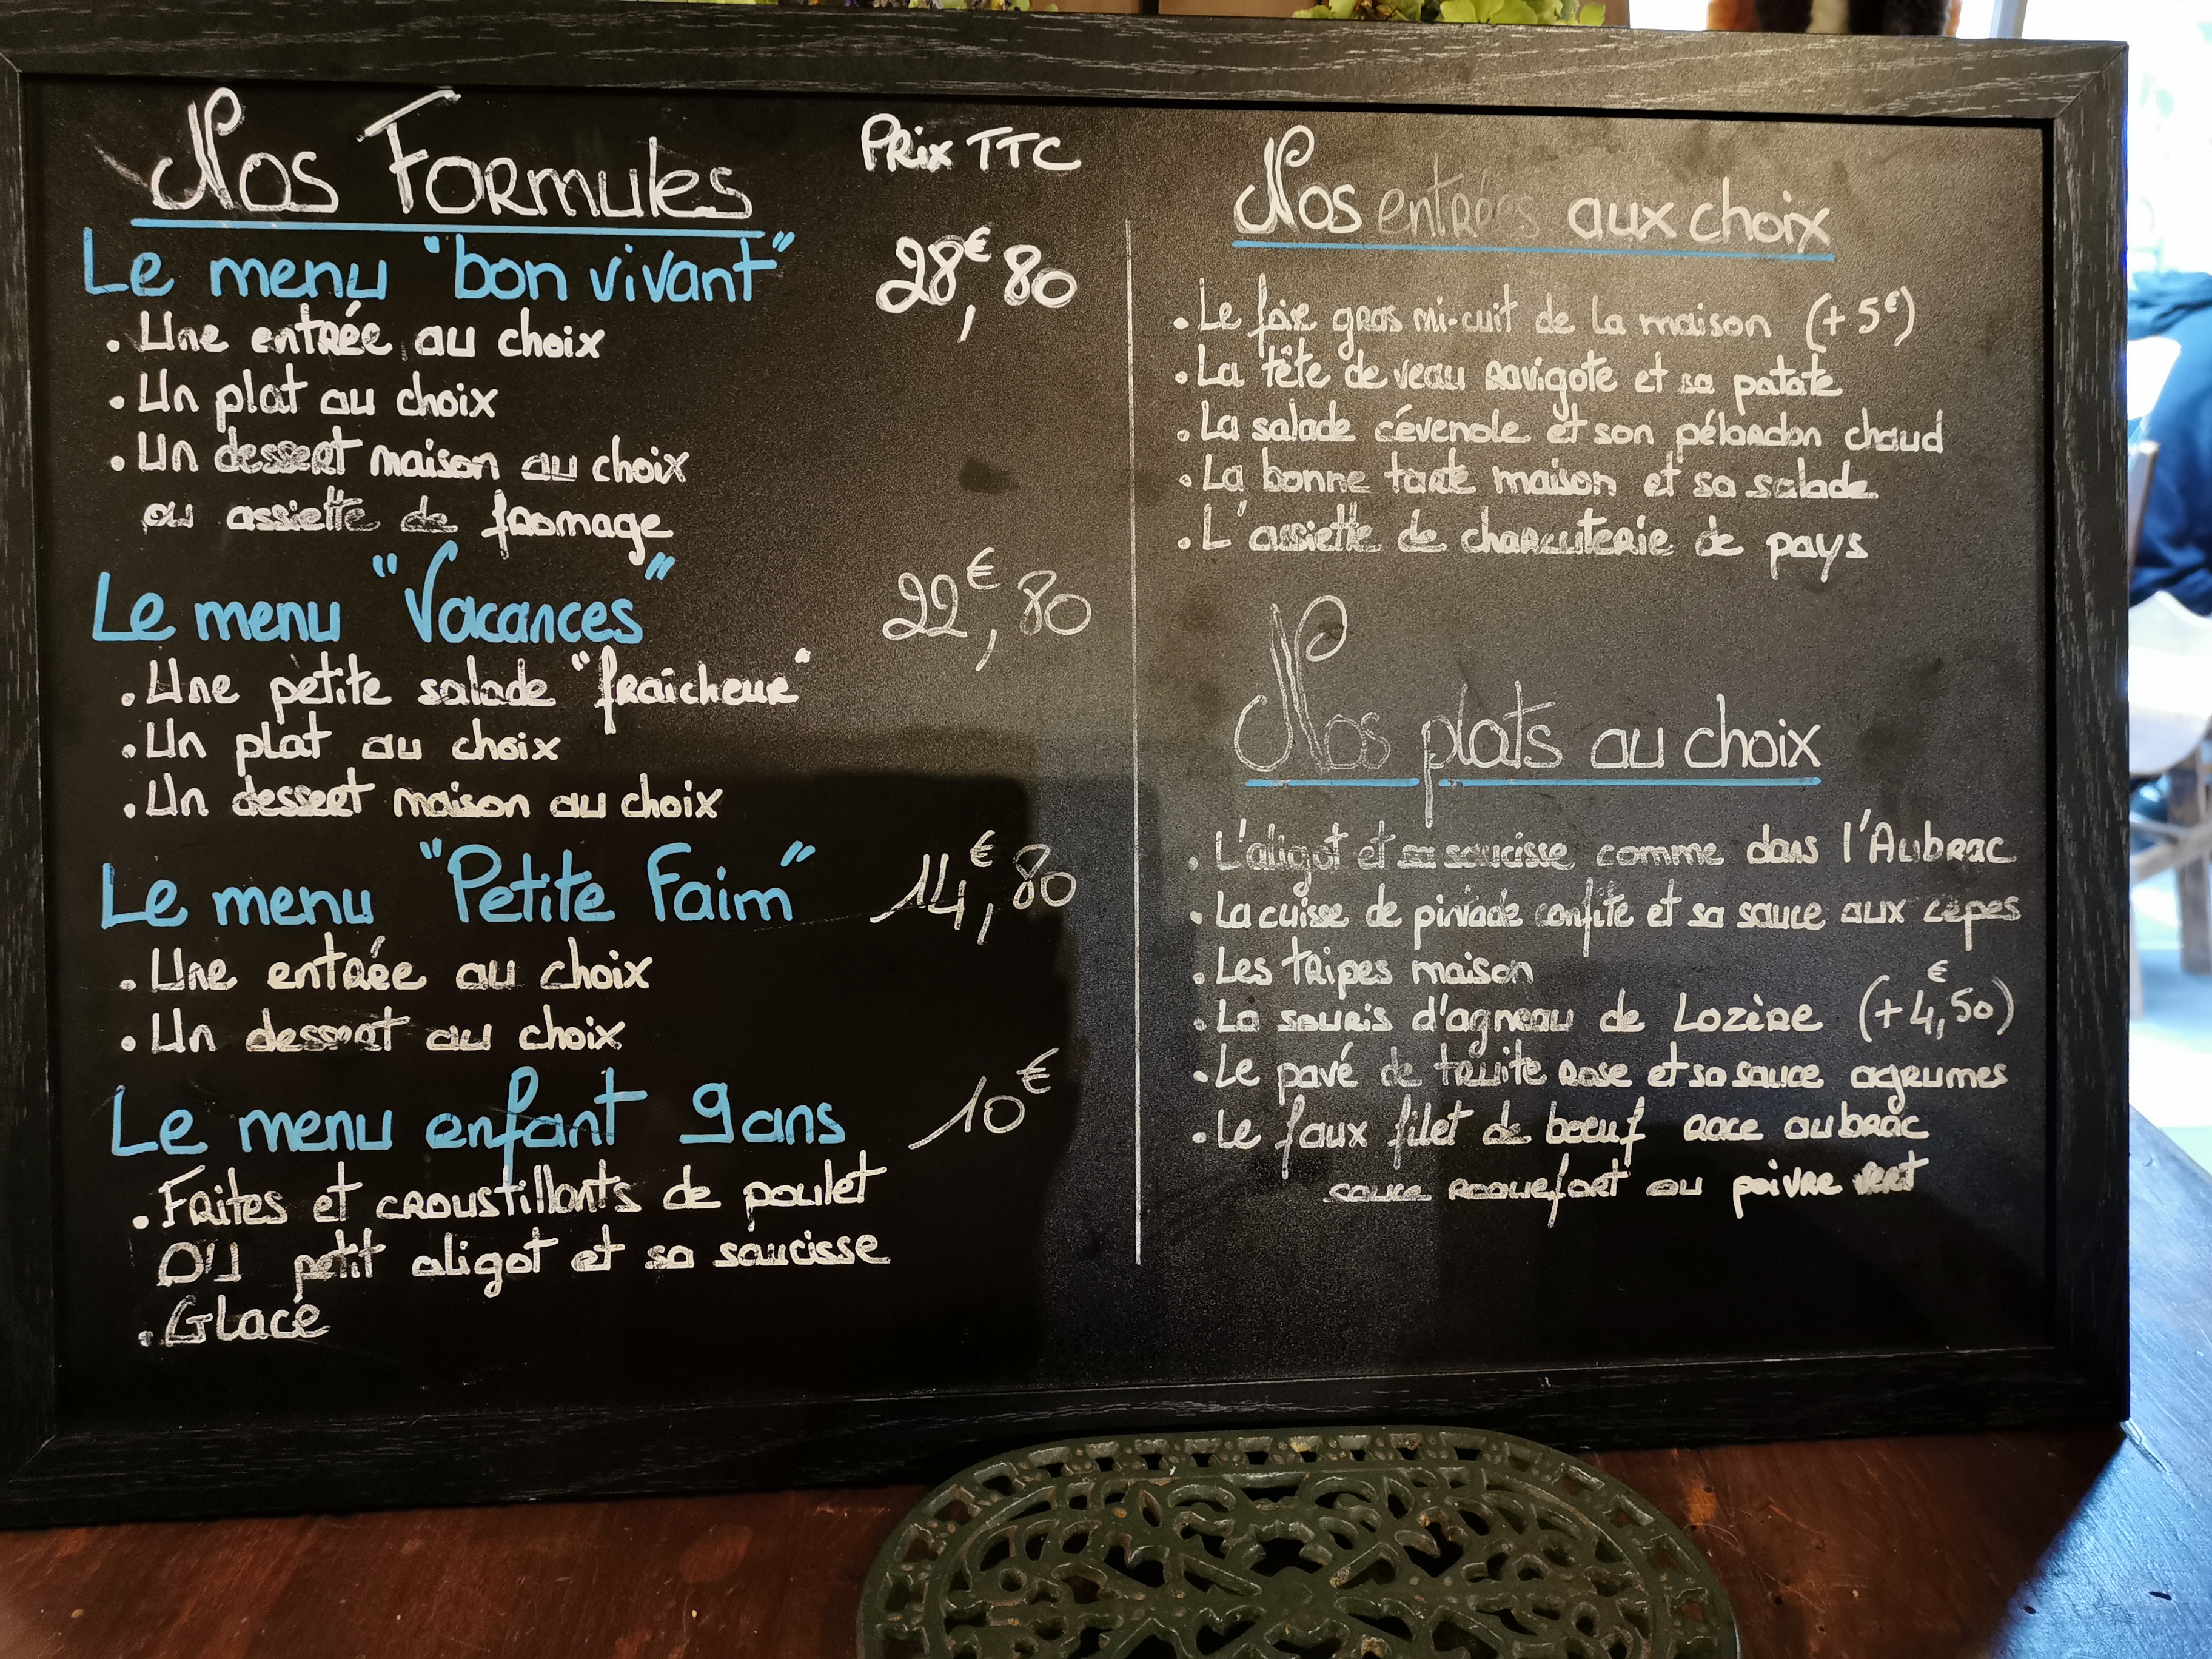 Nos Formules
Prix TTC
Le menu "bon vivant" 28€,80
. Une entrée au choix
. Un plat au choix
. Un dessert maison au choix
ou assiette de fromage
Le menu "Vacances" 22€,80
. Une petite salade "fraîcheur"
. Un plat au choix
. Un dessert maison au choix
Le menu "Petite Faim" 14€,80
. Une entrée au choix
. Un dessert au choix
Le menu enfant 9ans 10€
. Frites et croustillants de poulet
OU petit aligot et sa saucisse
. Glace
Nos entrées aux choix
. Le foie gras mi-cuit de la maison (+5€)
. La tête de veau ravigote et sa patate
. La salade cévenole et son pélardon chaud
. La bonne tarte maison et sa salade
. L'assiette de charcuterie de pays
Nos plats au choix
. L'aligot et sa saucisse comme dans l'Aubrac
. La cuisse de pintade confite et sa sauce aux cèpes
. Les tripes maison
. La souris d'agneau de Lozère (+4€,50)
. Le pavé de truite rose et sa sauce agrumes
. Le faux filet de boeuf race aubrac
sauce roquefort ou poivre vert